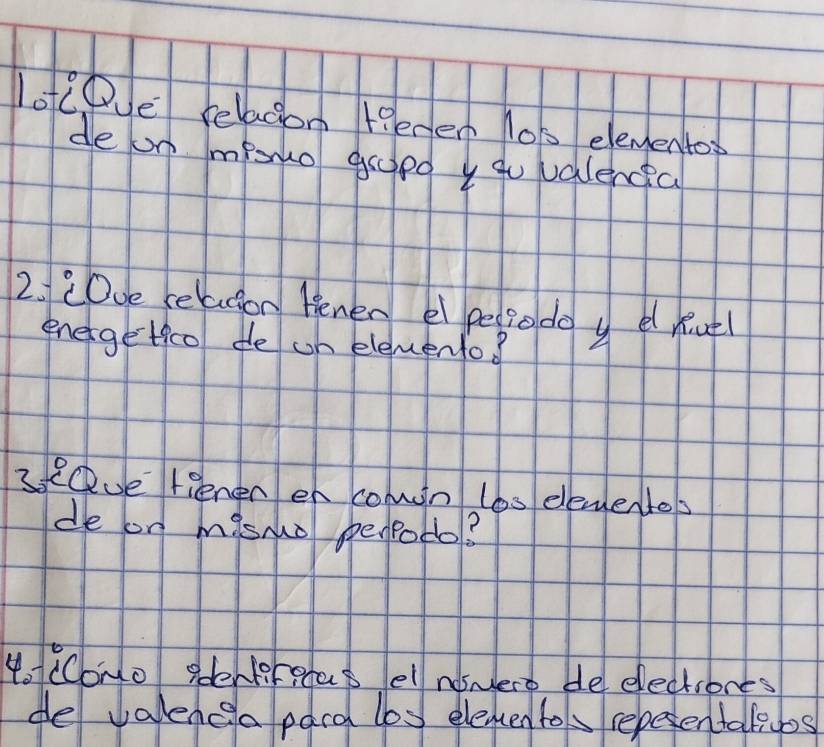 1.-¿Qué relación tienen los elementos
de un mismo grupo y su valencia
2.-¿Que relación tienen el periodo y el nivel
energetico de un elemento?
3.-¿Qué tienen en común los elementos
de un mismo periodo?
4.-¿Cómo identificas el número de electrones
de valencia para los elementos representativos